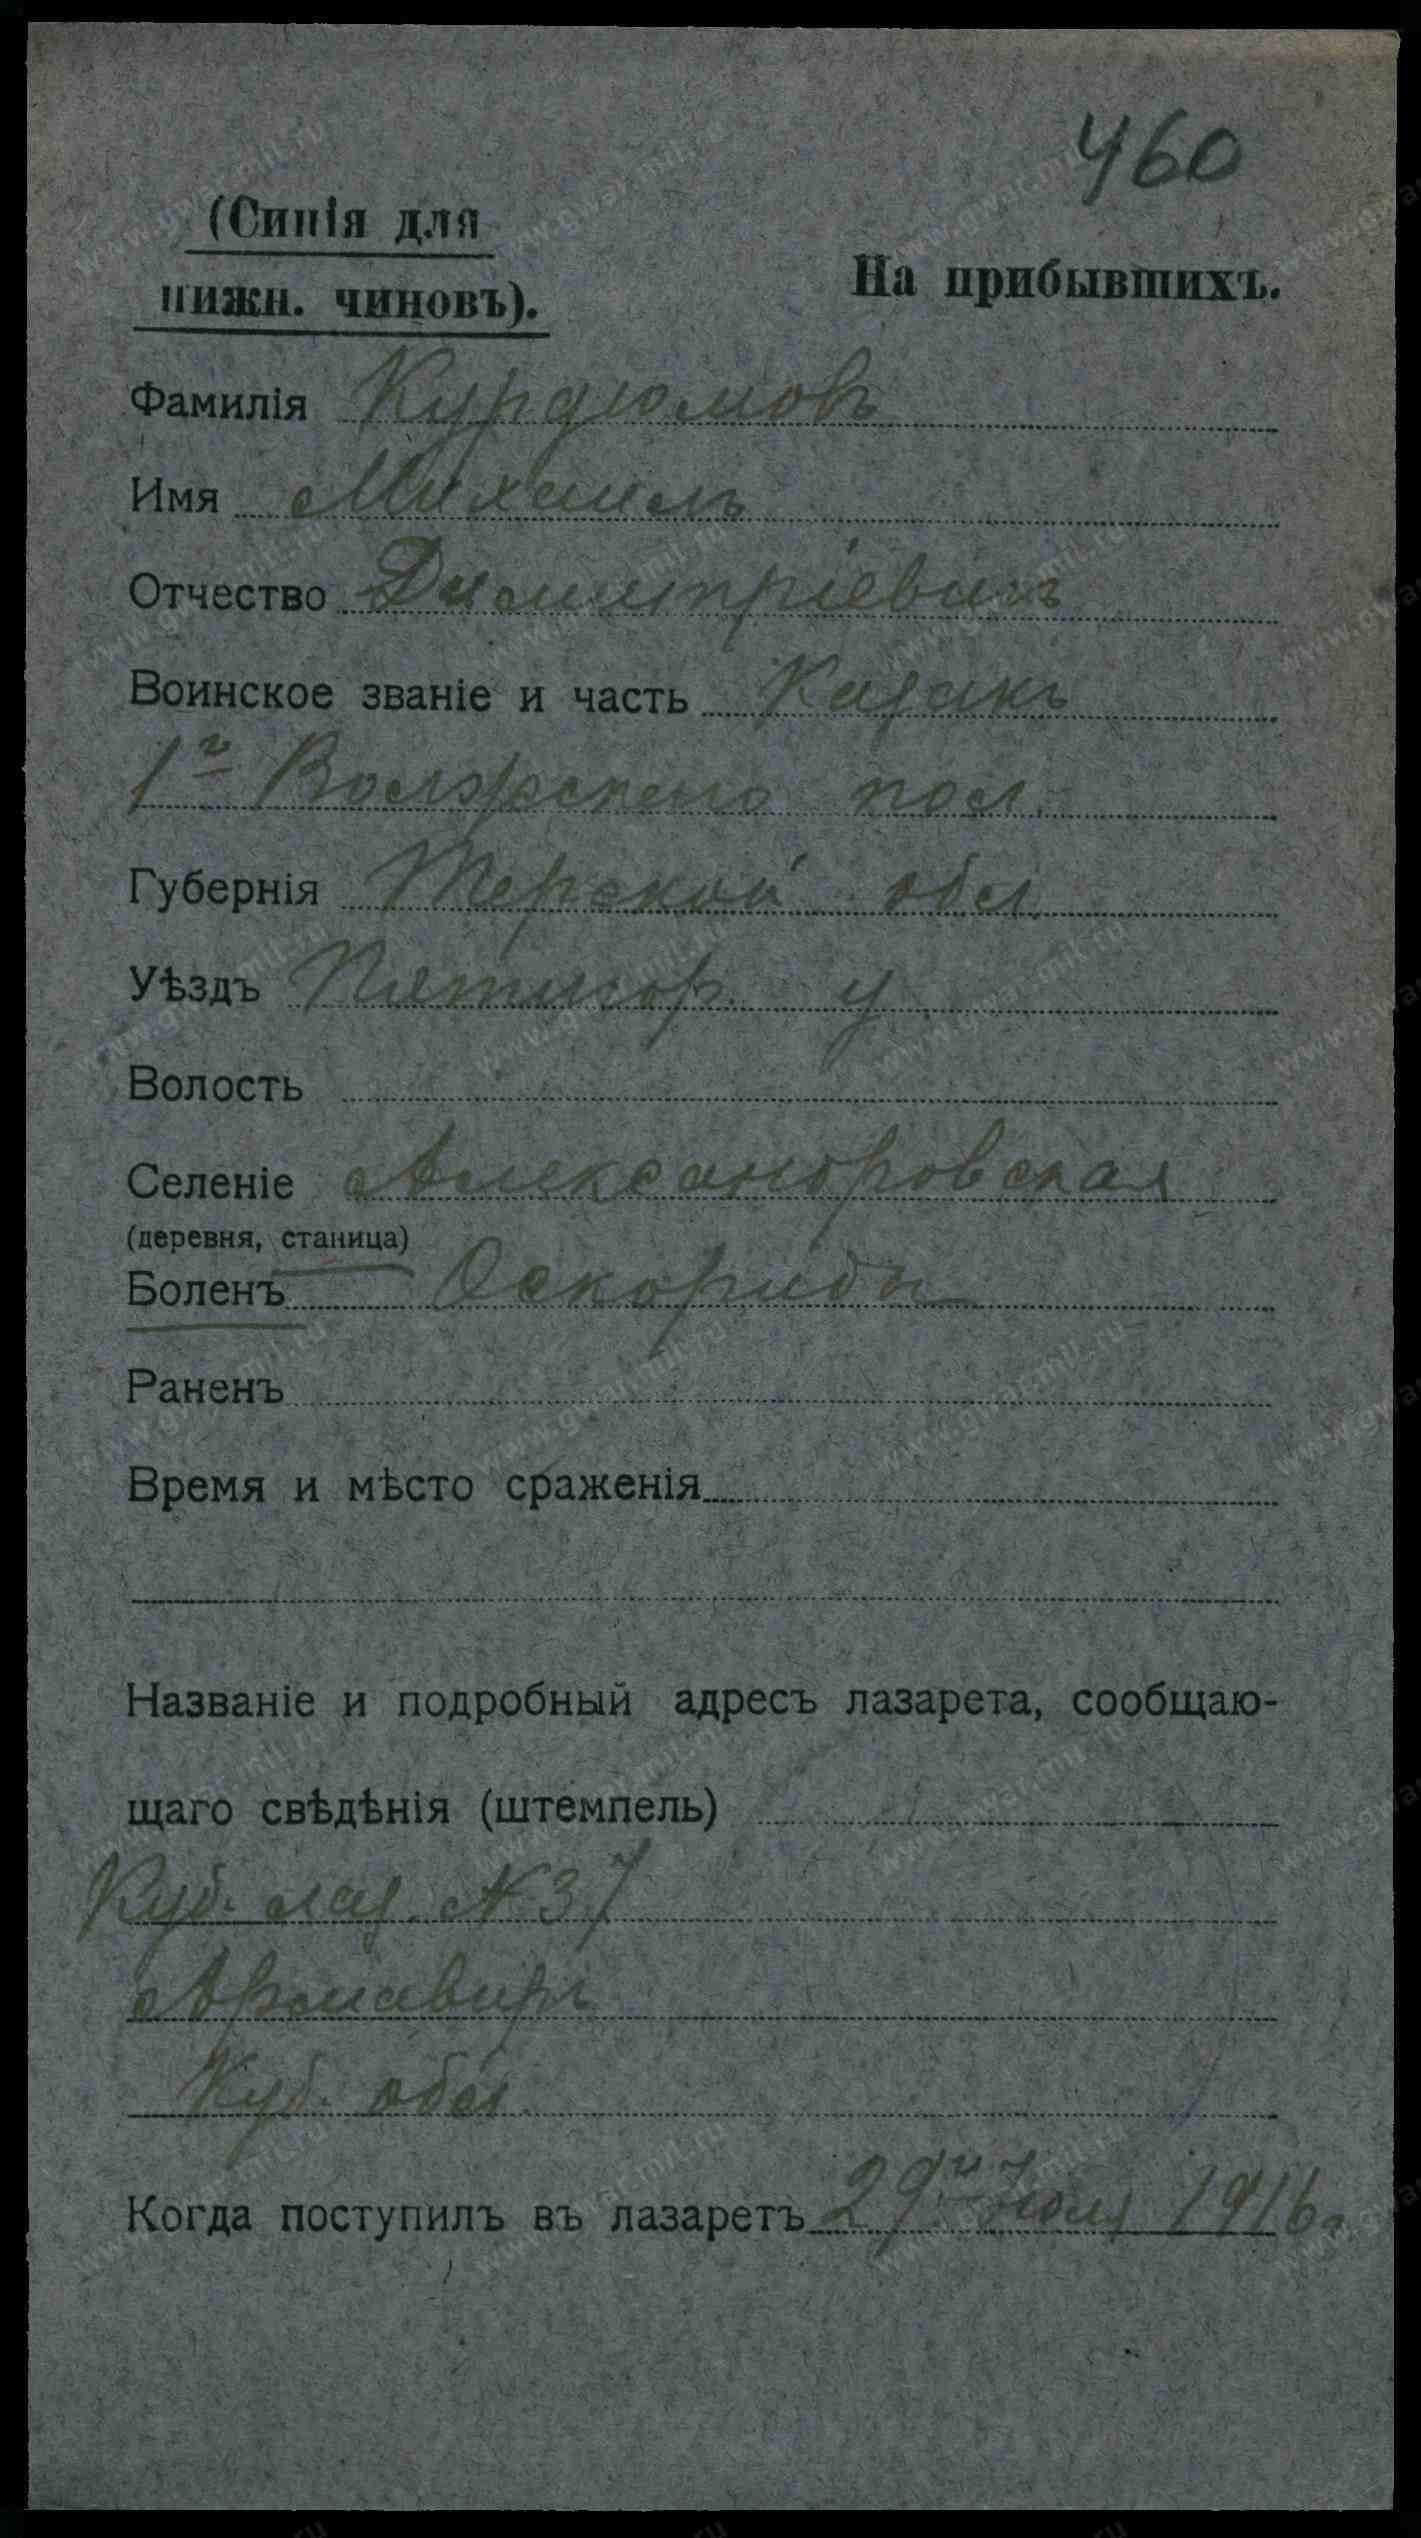 460
(Синія для
нижн. чиновъ).
На прибывшихъ.
Фамилія Курдюмовъ
Имя Михаилъ
Отчество Димитріевичъ
Воинское званіе и часть Казакъ
1го Волжскаго пол.
Губернія Терской обл.
Уѣздъ Пятигор. у
Волость
Селеніе Александровская
(деревня, станица)
Боленъ
Раненъ
Время и мѣсто сраженія
Названіе и подробный адресъ лазарета, сообщаю-
щаго свѣдѣнія (штемпель)
Куб. лаз. № 37
Армавиръ
Куб. обл.
Когда поступилъ въ лазаретъ 29 Іюля 1916 г.
www.gwar.mil.ru